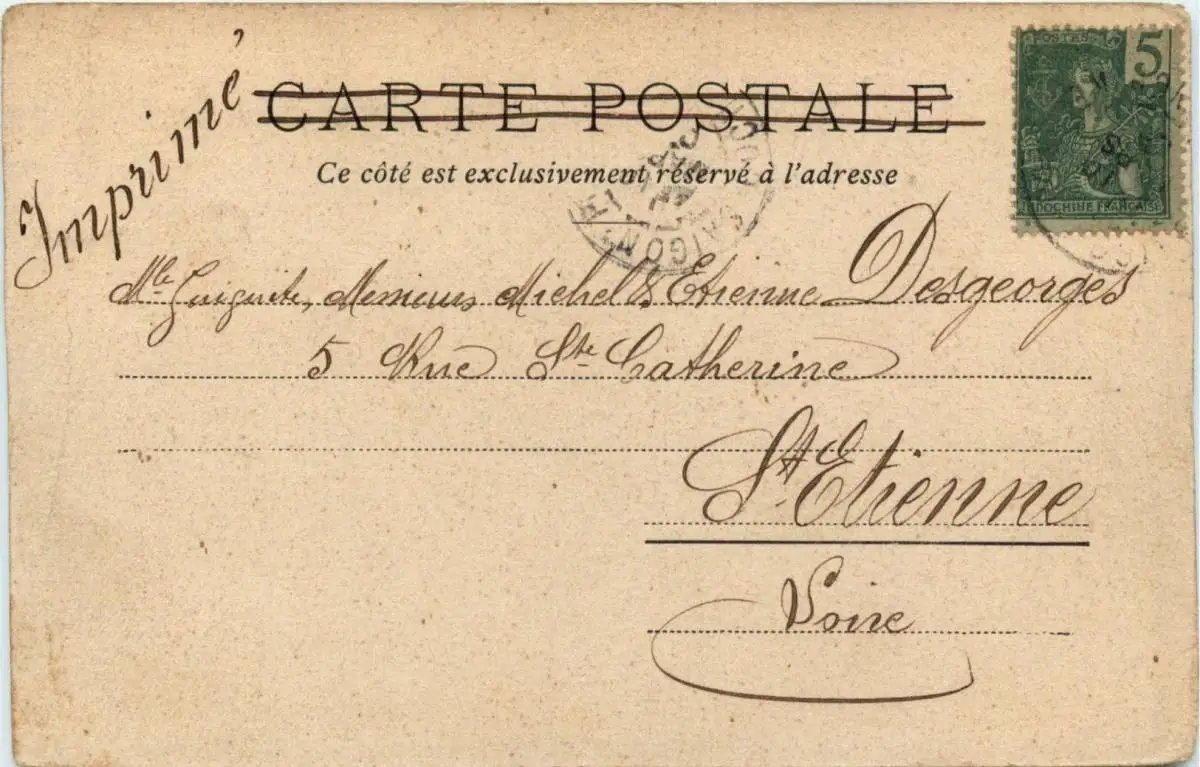 Imprimé
CARTE POSTALE
Ce côté est exclusivement réservé à l'adresse
POSTES
5
INDOCHINE FRANÇAISE
SAIGON
Mlle Messieurs Michel & Etienne Desgeorges
5 Rue Ste Catherine
St Etienne
Loire